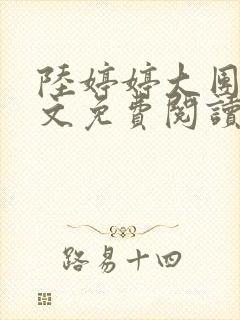 陸婷婷大團
文免費閱讀
路易十四